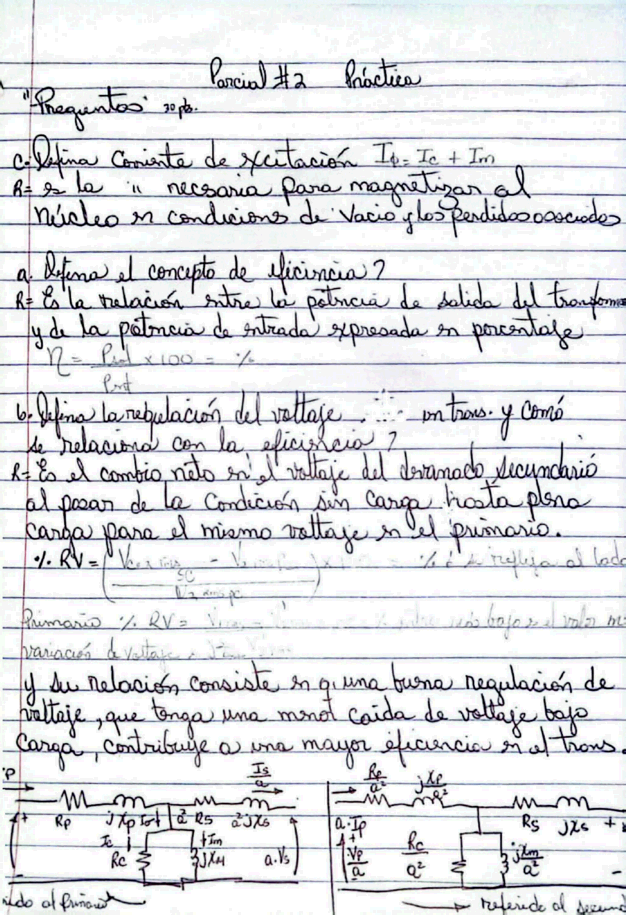 Parcial #2 Práctica
"Preguntas" 30 pts.
c. Defina Corriente de excitación Iφ = Ic + Im
R= es la " necesaria para magnetizar al
núcleo en condiciones de vacio y las perdidas asociadas
a. Defina el concepto de eficiencia?
R= Es la relación entre la potencia de salida del transforma
y de la potencia de entrada expresada en porcentaje
η = Psal / Pent x 100 = %
b. Defina la regulación del voltaje en trans. y comó
se relaciona con la eficiencia?
R= Es el cambio neto en el voltaje del devanado secundario
al pasar de la condición sin carga hasta plena
carga para el mismo voltaje en el primario.
% RV = % se refleja al lado
Primario % RV = más bajo es el valor
variación de voltaje
y su relación consiste en q una buena regulación de
voltaje, que tenga una menor caida de voltaje bajo
carga, contribuye a una mayor eficiencia en el trans.
Is/a
Rp jXp a² Rs a² jXs
Ic Rc Im jXM a·Vs
Rp/a² jXp/a² Rs jXs
a·Ip Vp/a Rc/a² jXm/a²
al Primario
referido al secund